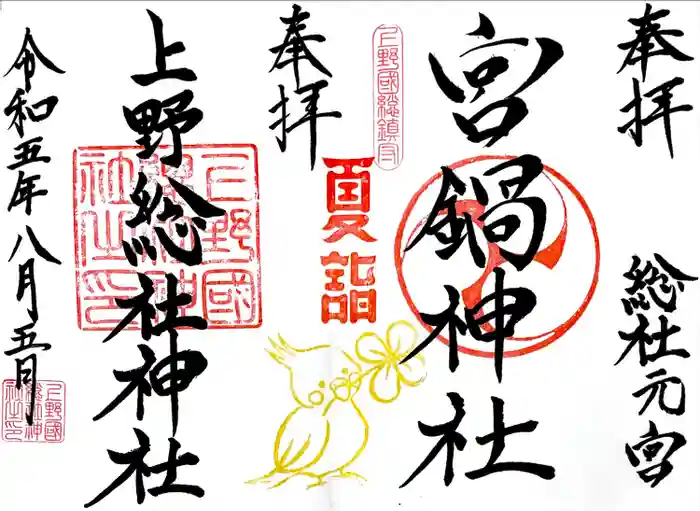 奉拝
総社元宮
宮鍋神社
上野國総鎮守
夏詣
奉拝
上野総社神社
上野國総社神社之印
令和五年八月五日
上野國総社神社之印